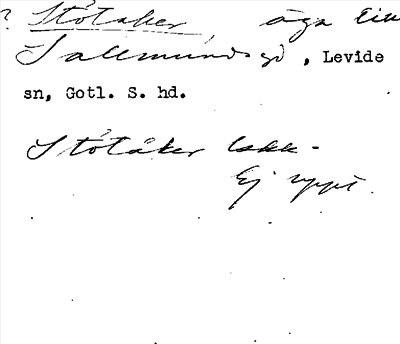 ? Stötaker, äga till
Sallmundsgd, Levide
sn, Gotl. S. hd.
Stötåker lskk-
Ej uppt.